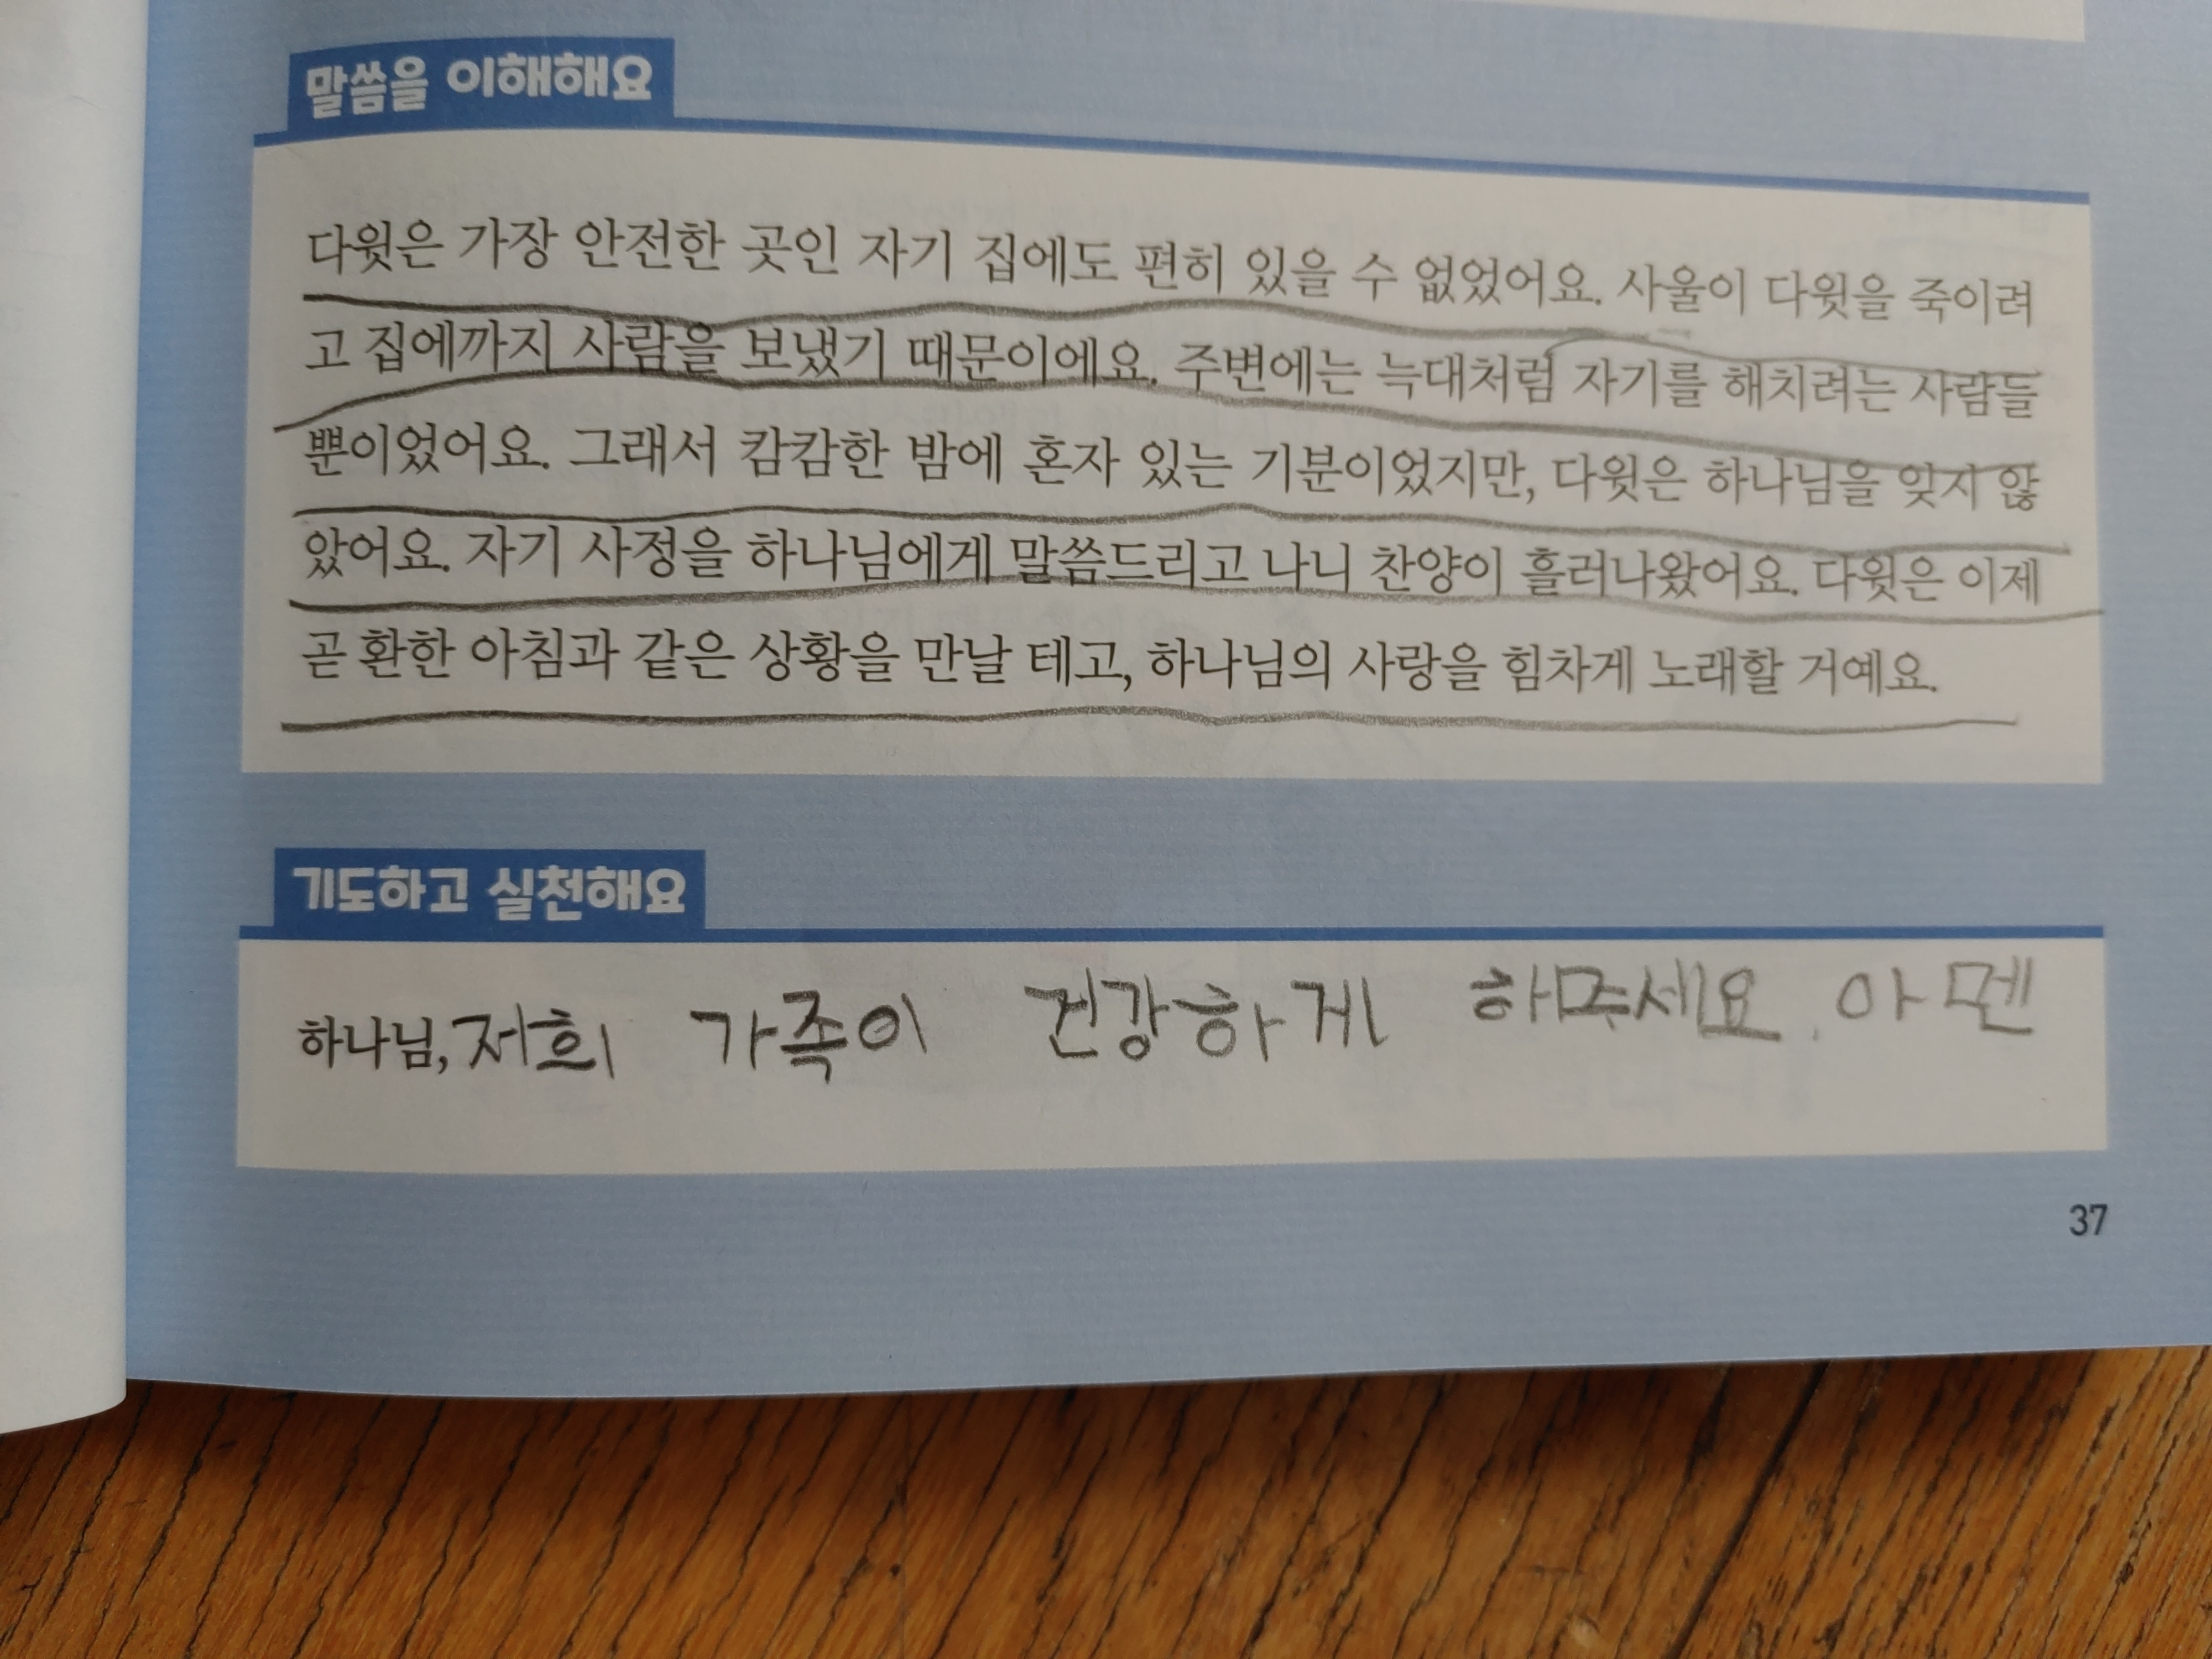 말씀을 이해해요
다윗은 가장 안전한 곳인 자기 집에도 편히 있을 수 없었어요. 사울이 다윗을 죽이려
고 집에까지 사람을 보냈기 때문이에요. 주변에는 늑대처럼 자기를 해치려는 사람들
뿐이었어요. 그래서 캄캄한 밤에 혼자 있는 기분이었지만, 다윗은 하나님을 잊지 않
았어요. 자기 사정을 하나님에게 말씀드리고 나니 찬양이 흘러나왔어요. 다윗은 이제
곧 환한 아침과 같은 상황을 만날 테고, 하나님의 사랑을 힘차게 노래할 거예요.
기도하고 실천해요
하나님, 저희 가족이 건강하게 하주세요. 아멘
37